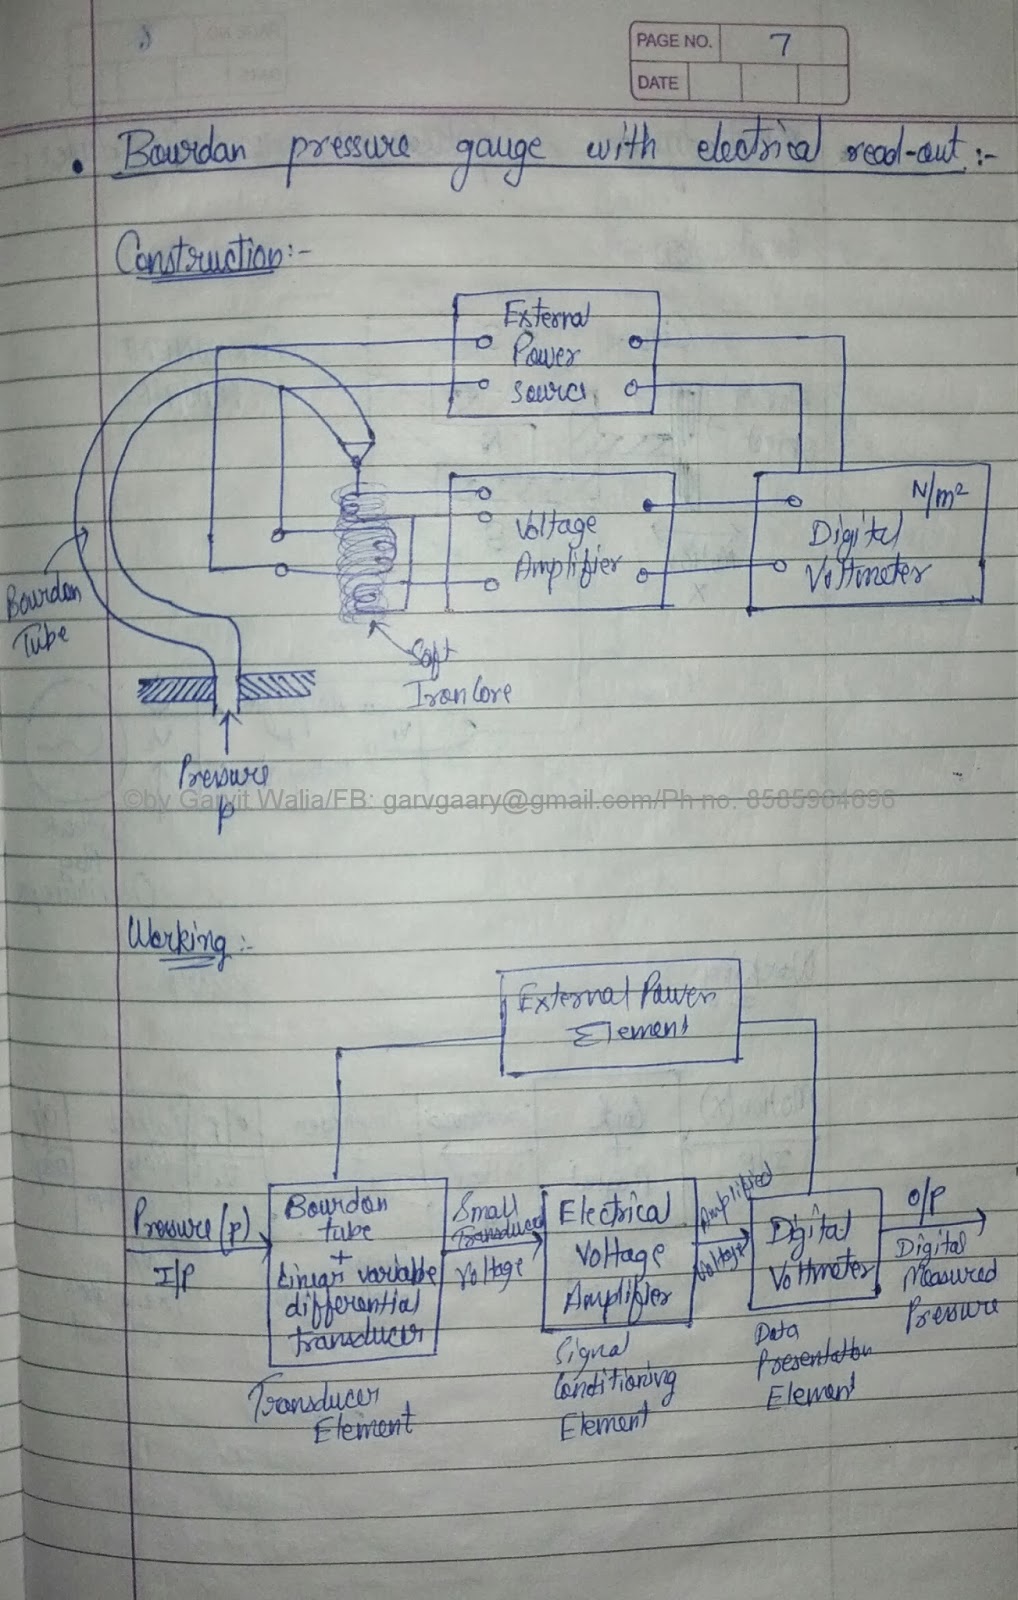 PAGE NO. 7
DATE
• Bourdan pressure gauge with electrical read-out :-
Construction:-
External
Power
source
N/m²
Voltage
Amplifier
Digital
Voltmeter
Bourdan
Tube
Soft
Iron Core
Pressure
P
©by Garvit Walia/FB: garvgaary@gmail.com/Ph no. 8585964696
Working :-
External Power
Element
Pressure (P)
I/P
Bourdan
tube
+
Linear variable
differential
transducer
Small
Transducer
Voltage
Electrical
Voltage
Amplifier
Amplified
Voltage
Digital
Voltmeter
O/P
Digital
Measured
Pressure
Transducer
Element
Signal
Conditioning
Element
Data
Presentation
Element